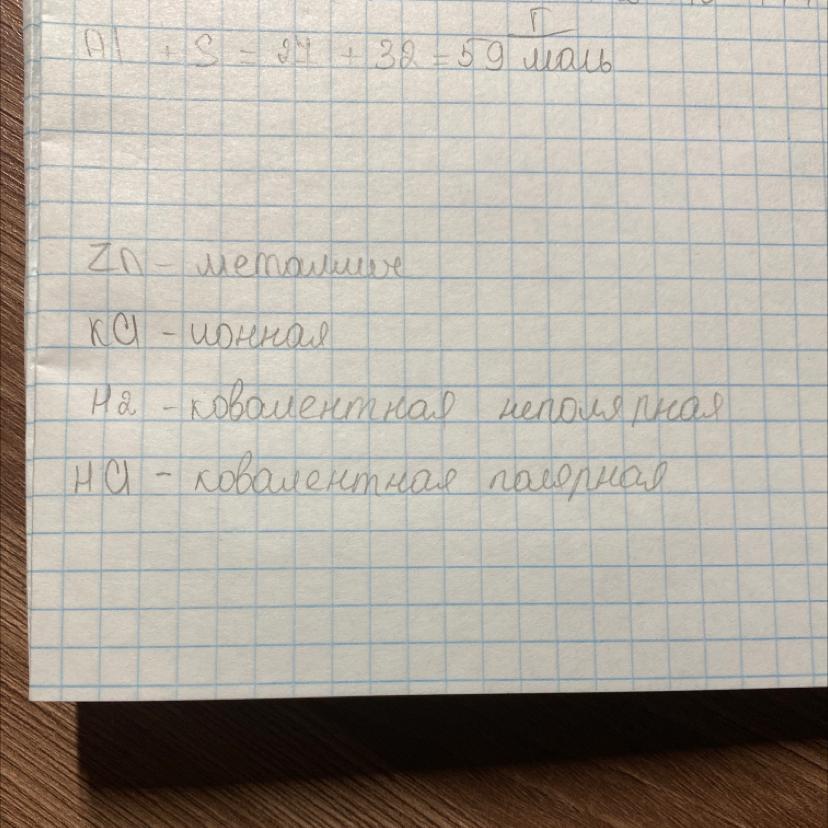 Al + S = 27 + 32 = 59 г/моль
Zn - металлич
KCl - ионная
H2 - ковалентная неполярная
HCl - ковалентная полярная